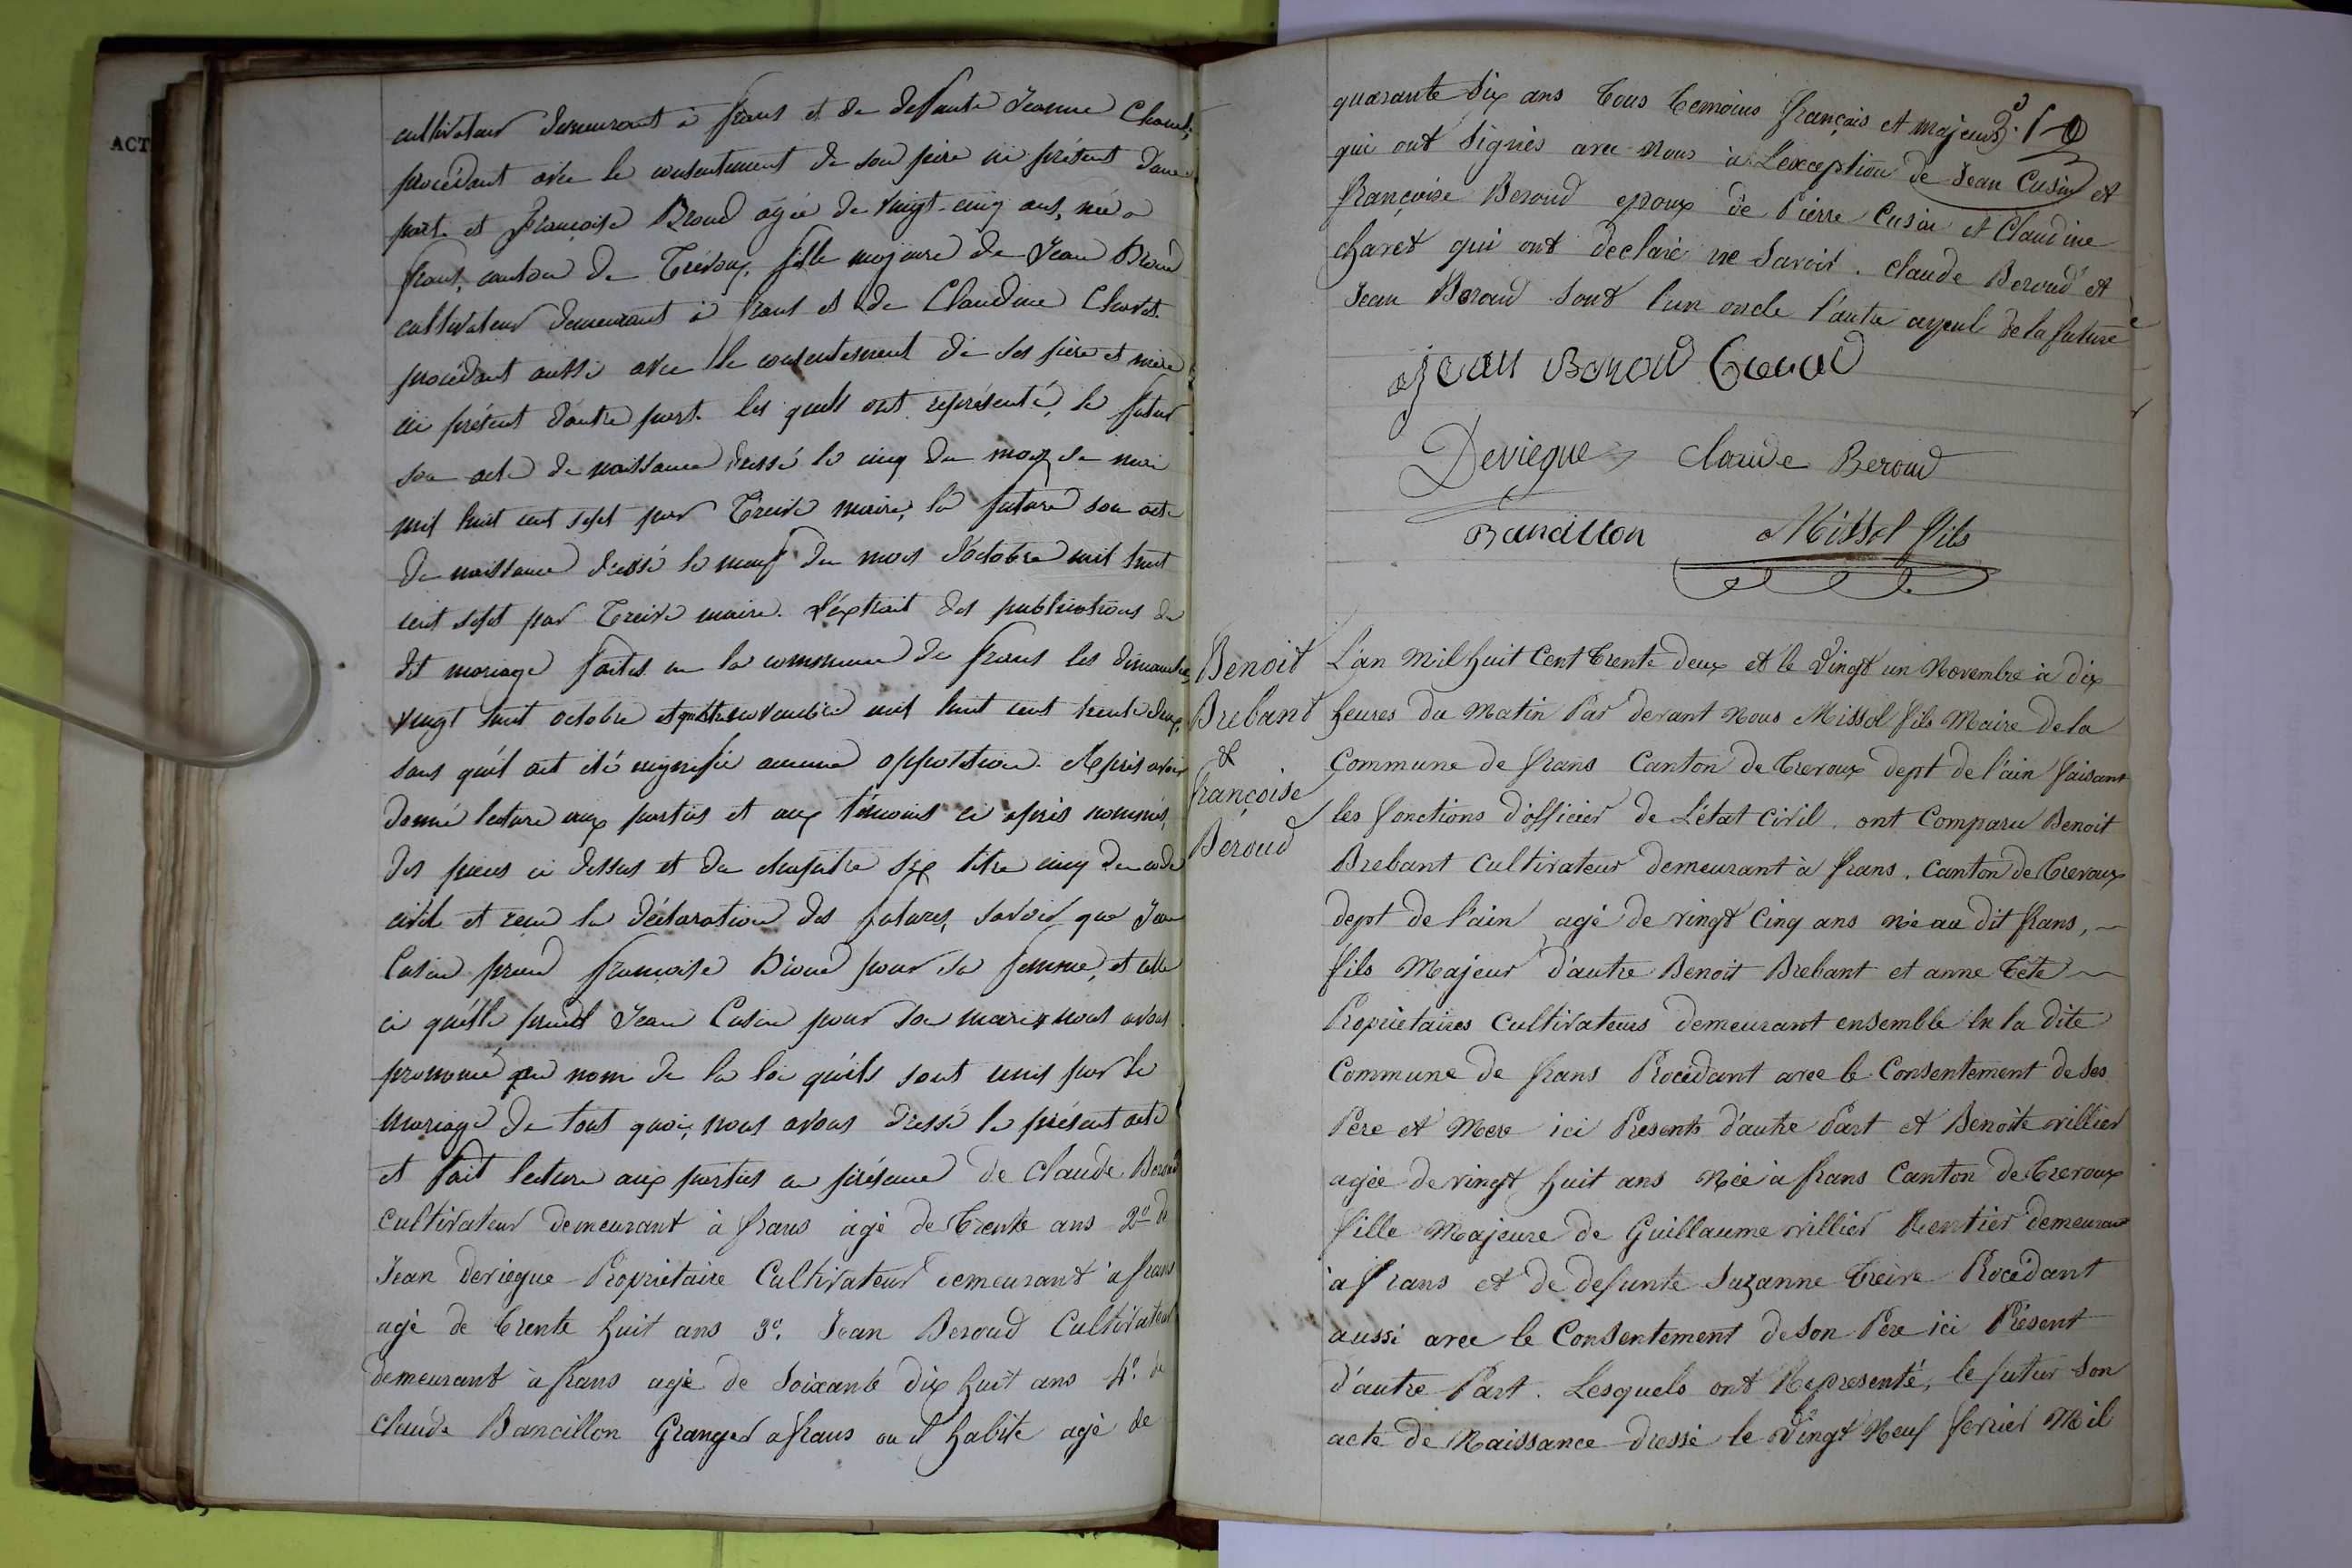 ACT
cultivateur demeurant à frans et de deffunte Jeanne
procédant avec le consentement de son père ici présent d'une
part. et françoise Broud agée de vingt-cinq ans, née a
frans, canton de Trévoux, fille majeure de Jean Broud
cultivateur demeurant à frans et de Claudine Charet.
procédant aussi avec le consentement de ses père et mère
ici présent d'autre part. les quels ont représenté, le futur
son acte de naissance dressé le cinq du mois de
mil huit cent sept par Treive maire, la future son acte
de naissance dressé le neuf du mois d'octobre mil huit
cent sept par Treive maire. l'éxtrait des publications du
dit mariage faites en la commune de frans les dimanches
vingt huit octobre et quatre novembre mil huit cent trente deux,
sans qu'il ait été signifié aucune opposition. Après avoir
donné lecture aux parties et aux témoins ci après nommés,
des pièces ci dessus et du chapitre six titre cinq du code
civil et reçu la déclaration des futures, savoir que Jean
Cusin prend françoise Broud pour sa femme, et celle
ci qu'elle prend Jean Cusin pour son mari nous avons
prononcé au nom de la loi qu'ils sont unis par le
mariage de tout quoi, nous avons dressé le présent acte
et fait lecture aux parties en présence de Claude Beroud
Cultivateur demeurant à frans agé de trente ans 2º de
Jean deriegue Propriétaire Cultivateur demeurant à frans
agé de trente huit ans 3º. Jean Beroud Cultivateur
demeurant à frans agé de Soixante dix huit ans 4º. de
claude Bancillon Granger a frans ou il habite agé de
quarante Six ans tous temoins français et majeurs
qui ont Signés avec nous à L'exception de Jean Cusin et
françoise Beroud epoux de Pierre Cusin et Claudine
charet qui ont declaré ne Savoir. claude Beroud et
Jean Beroud Sont l'un oncle l'autre ayeul de la future
jean Beroud
Deriegue claude Beroud
Bancillon Missol fils
Benoit
Brebant
&
françoise
Beroud
L'an Mil huit Cent trente deux et le Vingt un Novembre à dix
heures du Matin Par devant Nous Missol fils Maire de la
Commune de frans Canton de Trevoux dept de l'ain faisant
les fonctions d'officier de L'état Civil. ont Comparu Benoit
Brebant Cultivateur demeurant à frans. Canton de Trevoux
dept de l'ain agé de vingt Cinq ans né au dit frans,
fils Majeur d'autre Benoit Brebant et anne Tête
Propriétaires Cultivateurs demeurant ensemble en la dite
Commune de frans Procédant avec le Consentement de Ses
Père et Mere ici Présents d'autre Part et Benoîte villier
agée de vingt huit ans Née à frans Canton de Trevoux
fille Majeure de Guillaume villier Rentier demeurant
à frans et de defunte Suzanne Treive Procédant
aussi avec le Consentement de Son Pere ici Présent
d'autre Part. Lesquels ont Représenté, le futur Son
acte de Naissance dressé le Vingt Neuf fevrier Mil